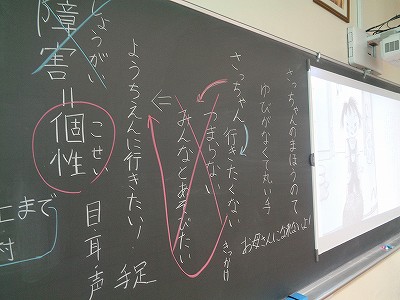 さっちゃんのまほうのて
ゆびがなくて丸い手
お母さんになれないよ!
さっちゃん 行きたくない
きっかけ
つまらない
みんなとあそびたい
⇐
ようちえんに行きたい!
しょうがい
障害=個性
こせい
目・耳・声
手足
まで